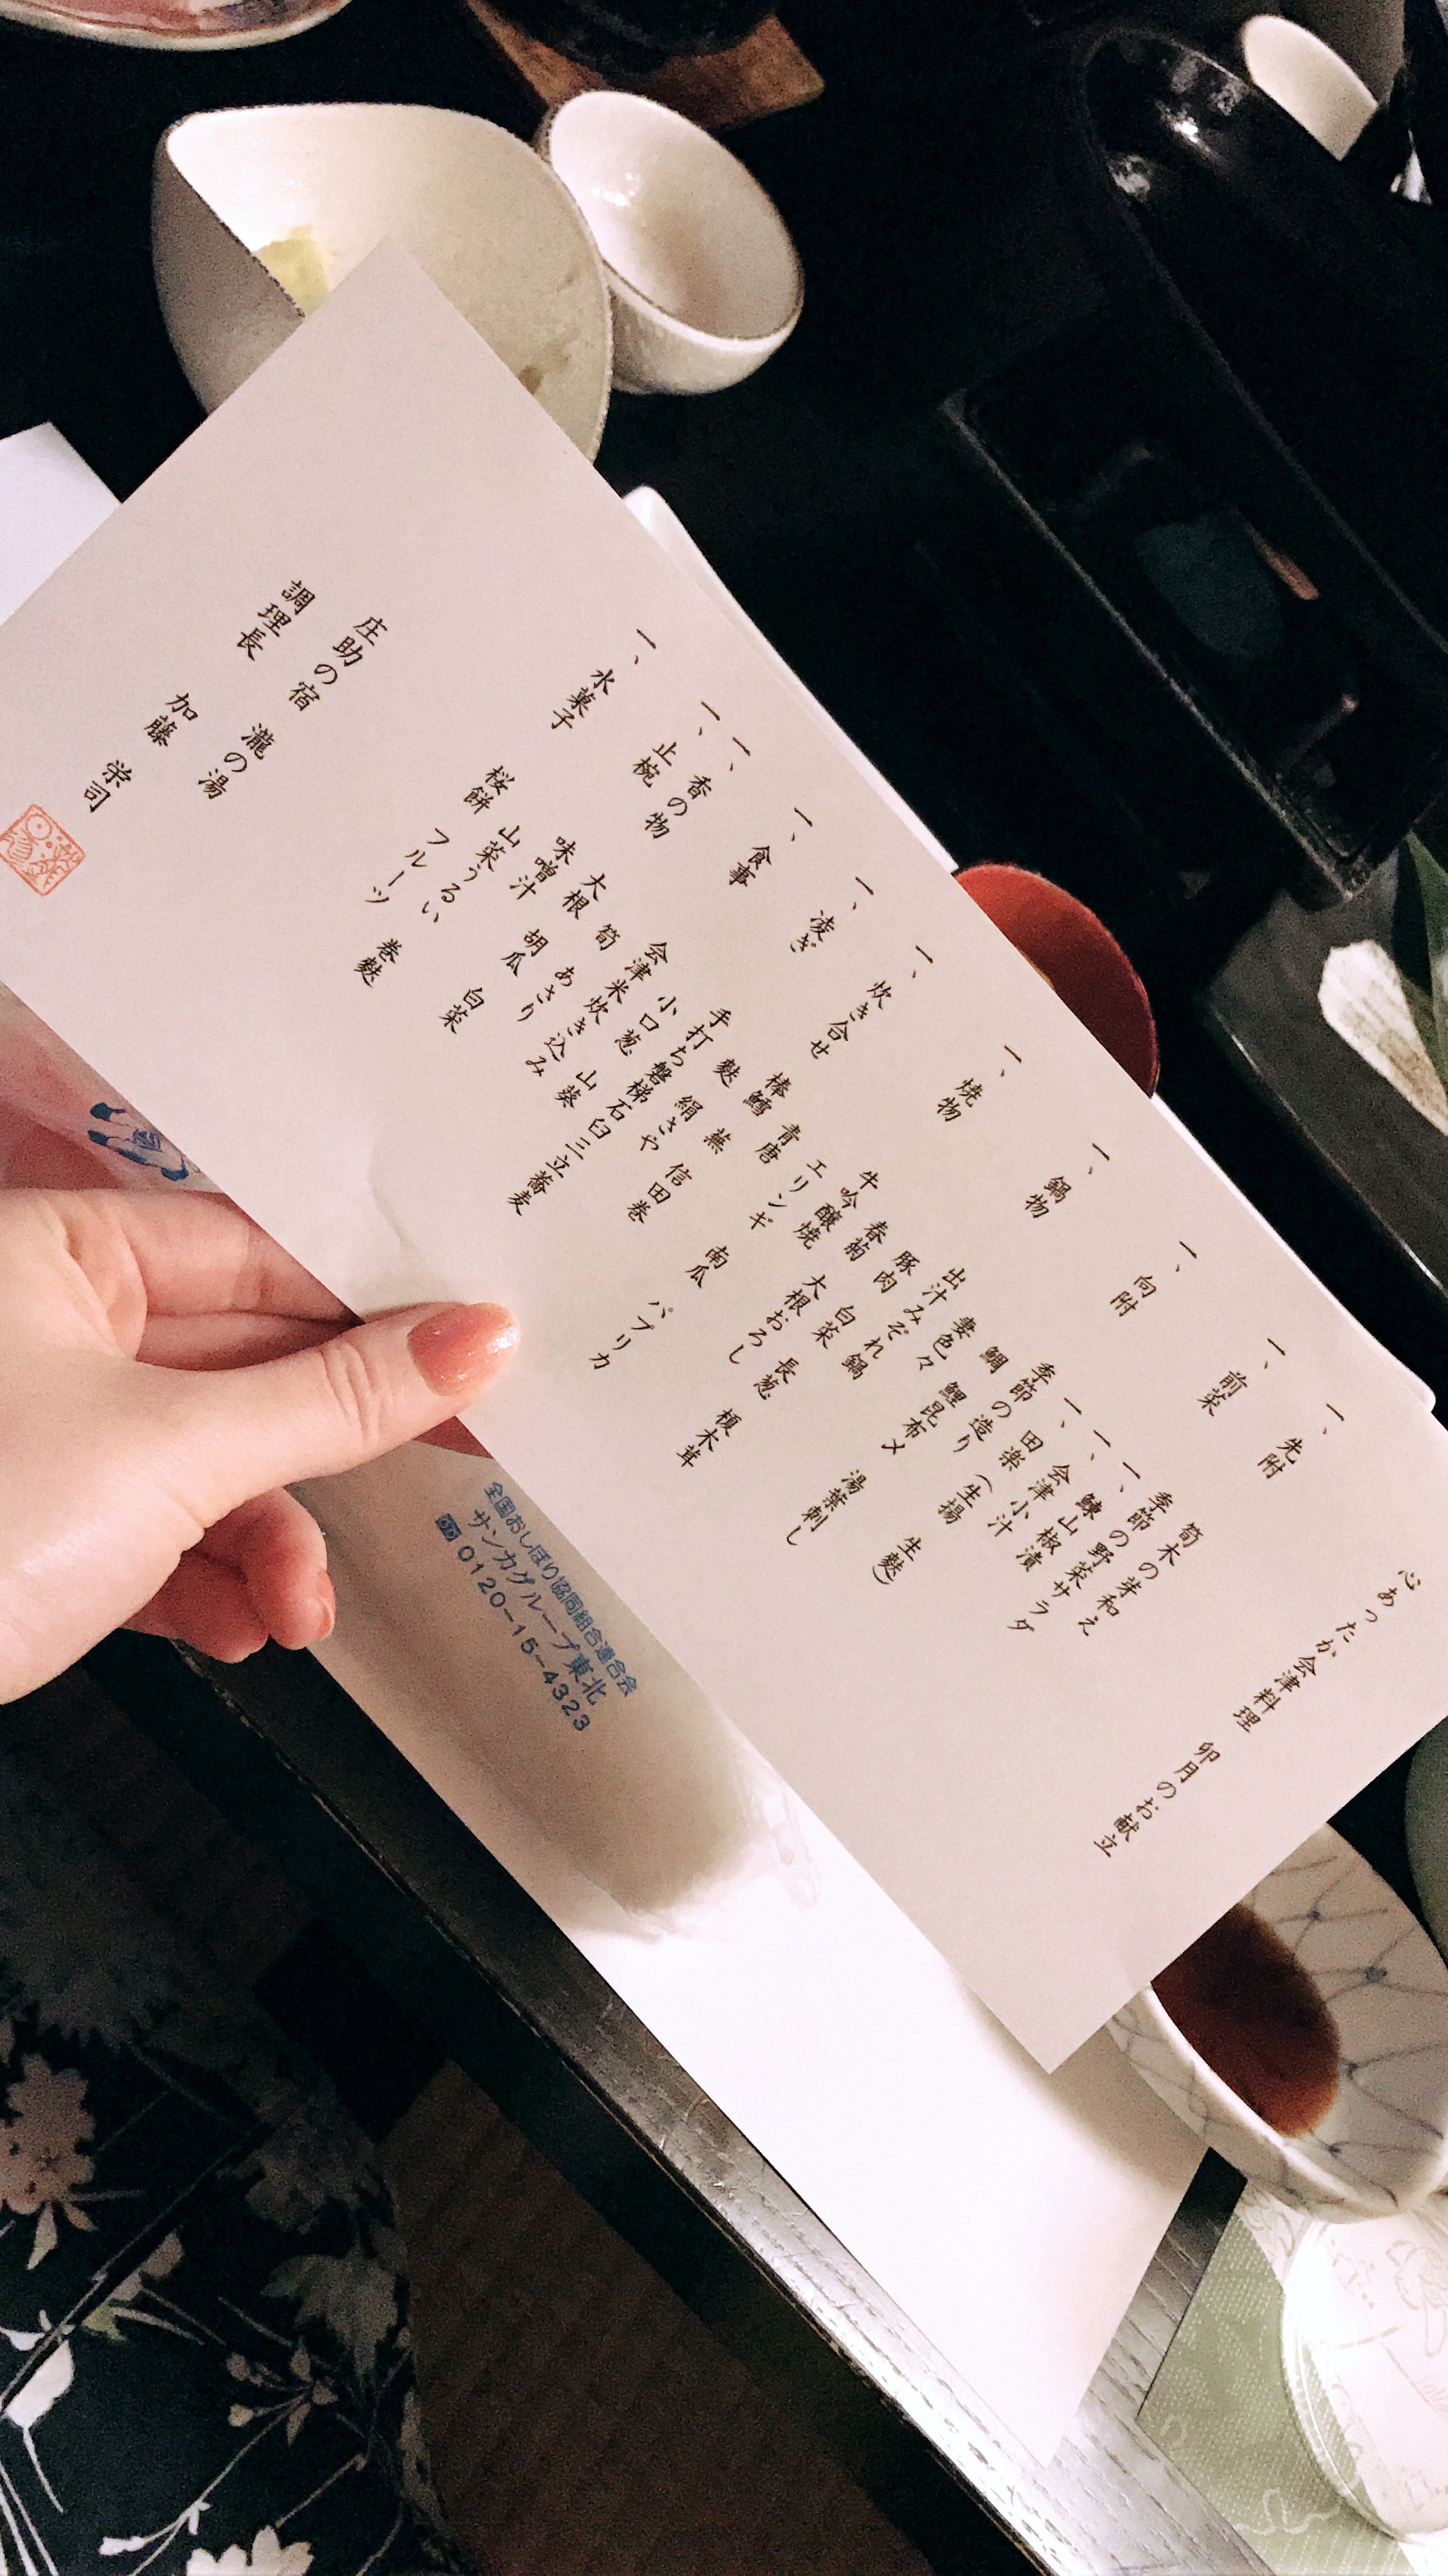 心あったか会津料理 卯月のお献立
一、先附
筍木の芽和え
一、前菜
季節の野菜サラダ
一、鰊山椒漬
一、会津小汁
一、田楽（生揚 生麩）
一、向附
季節の造り
鯛 鯉昆布〆 湯葉刺し
妻色々
一、鍋物
出汁みぞれ鍋
豚肉 白菜 長葱 榎木茸
春菊 大根おろし
一、焼物
牛吟醸焼
エリンギ 南瓜 パプリカ
青唐
一、炊き合せ
棒鱈 蕪 信田巻
麩 絹さや
一、凌ぎ
手打ち磐梯石臼三立蕎麦
小口葱 山葵
一、食事
会津米炊き込み
筍 あさり
一、香の物
大根 胡瓜 白菜
一、止椀
味噌汁
山菜うるい 巻麩
一、水菓子
桜餅 フルーツ
庄助の宿 瀧の湯
調理長 加藤 栄司
全国おしぼり協同組合連合会
サンカグループ東北
0120-15-4323